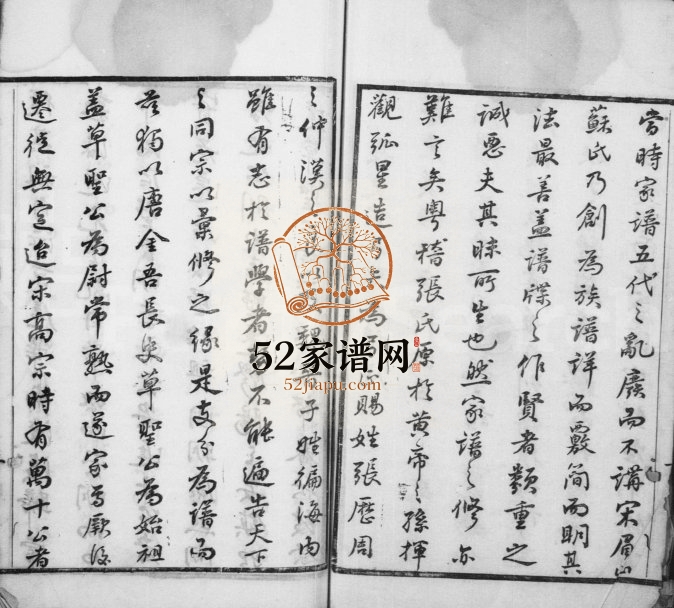 當時家譜五代之亂廣而不講宋眉山
蘇氏乃創為族譜詳而覈簡而明其
法最善蓋譜牒之作賢者類重之
誠惡夫其昧所生也然家譜之修亦
難言矣粵稽張氏原於黃帝之孫揮
觀弧星造為賜姓張歷周
之仲漢之子姓徧海內
雖有志於譜學者不能遍告天下
之同宗以彙修之緣是支分為譜而
茲獨以唐金吾長史草聖公為始祖
蓋草聖公為尉常熟而遂家焉厥後
遷徙無定迨宋高宗時有萬十公者
52家谱网
52jiapu.com